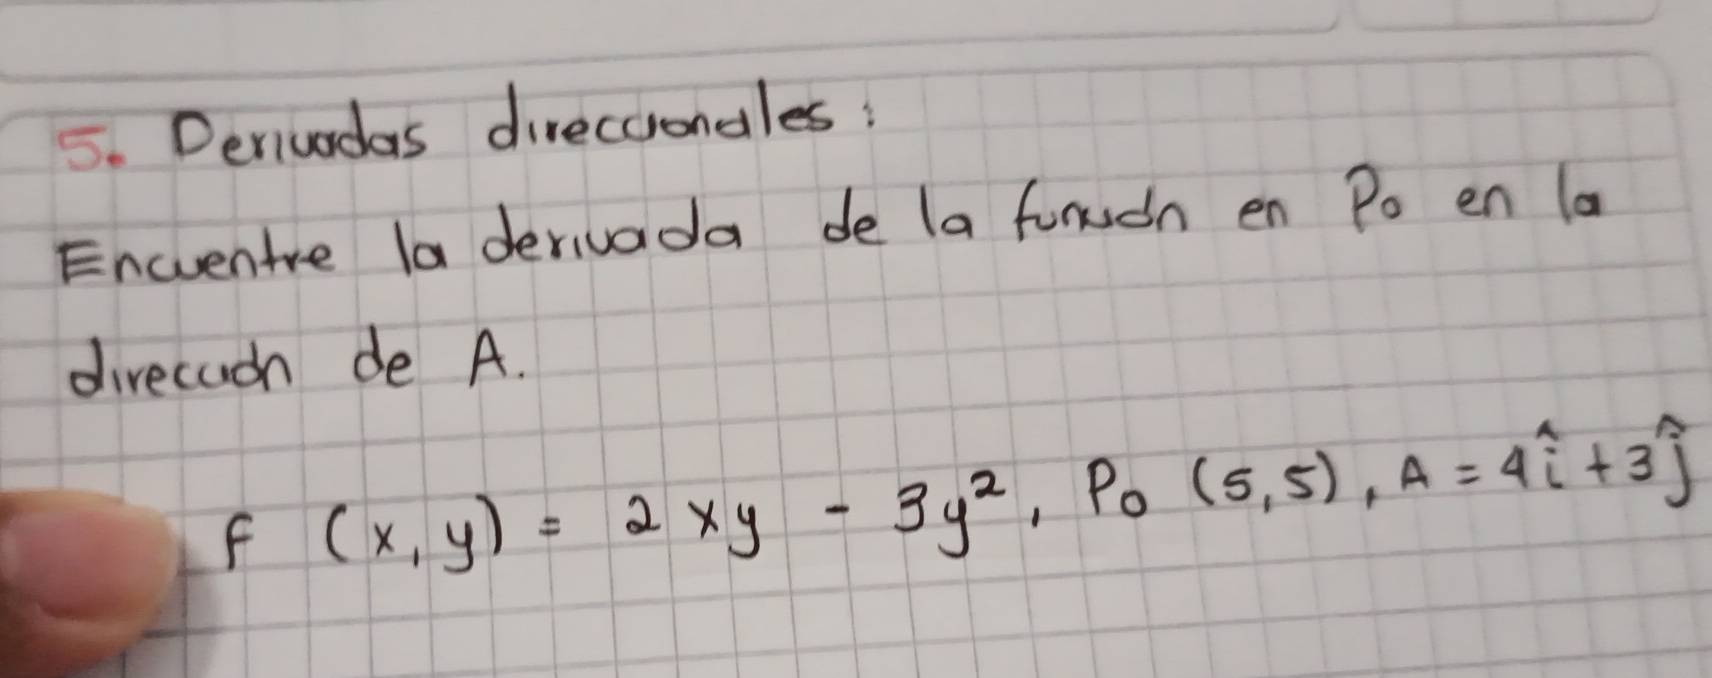 5. Derivadas direccionales:
Encuentre la derivada de la función en P₀ en la
dirección de A.
f (x, y) = 2xy - 3y², P₀ (5,5), A = 4î + 3ĵ